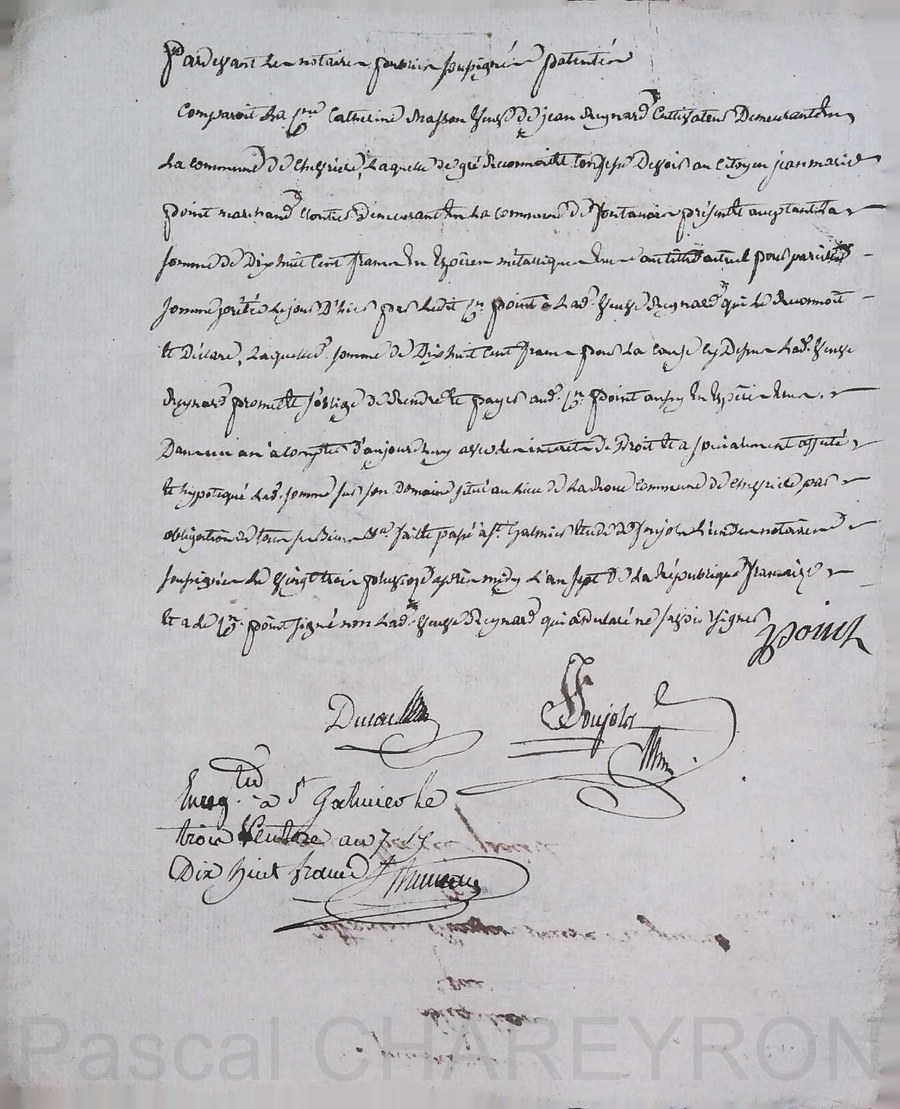 Pardevant les notaires publics soussignés patentés
Comparoit La Cne Catherine Masson veuve de jean Reynard Cultivateur Demeurant en
La commune de chevrieres, Laquelle de gré Reconnoit et Confesse Devoir au Citoyen jean marie
point marchand Demeurant En La commune de fontanes présent acceptant La
somme de Dix huit Cent francs En Espèces métalliques pour pareille
somme prêtée Lejour D'hier par Ledit Cn point à Lad. veuve Reynard qui Le Reconnoit
et Déclare, Laquelle somme de Dix huit Cent francs pour La cause cy Dessus Lad. veuve
Reynard promet et s'oblige de Rendre et payer aud. Cn point aussy En Espèces
Dans un an à Compter D'aujourdhuy avec les intérêts de Droit et a spécialement affecté
et hypotéqué Lad. somme sur son Domaine situé au Lieu de La Roue Commune de chevrieres par
obligation de tous ses Biens fait et passé à St. Galmier Etude de Poujols L'un des notaires
soussignés Le vingt trois pluviose après midy L'an sept de La République française
et a Le Cn. point signé non Lad. veuve Reynard qui a déclaré ne savoir signer
point
Poujols
Enregtré à St Galmier le
trois Ventose an 7
Dix huit francs
Pascal CHAREYRON